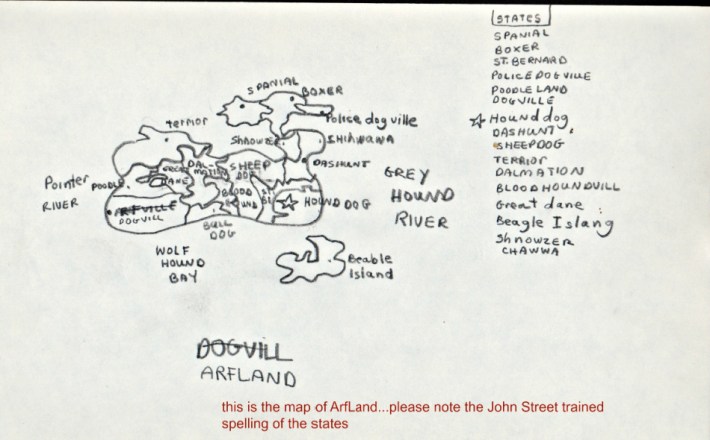 STATES
SPANIAL
BOXER
ST. BERNARD
POLICE DOGVILLE
POODLE LAND
DOGVILLE
Hound dog
DASHUNT
SHEEPDOG
TERRIOR
DALMATION
BLOODHOUNDVILL
Great dane
Beagle Islang
Shnowzer
CHAWWA
SPANIAL
BOXER
Terrior
Police dog ville
Shnowzer
SHIHWAWA
DAL-
MATION
SHEEP
DOG
DASHUNT
GREAT
DANE
Pointer
RIVER
POODLE
GREY
HOUND
RIVER
BLOOD
HOUND
ST
BE
HOUND DOG
ARFVILLE
DOGVILL
BULL
DOG
WOLF
HOUND
BAY
Beable
Island
DOGVILL
ARFLAND
this is the map of ArfLand...please note the John Street trained
spelling of the states